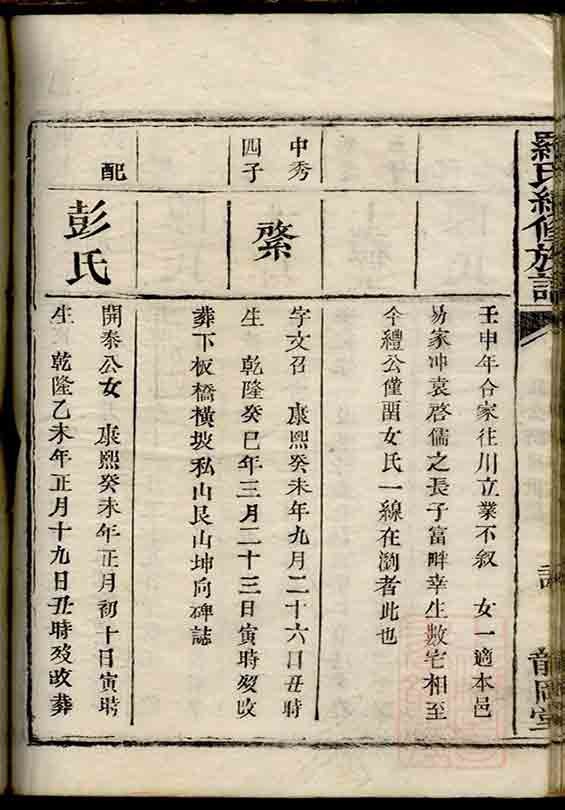 羅氏續修族譜
龍岡堂
壬申年合家往川立業不叙 女一適本邑
易家冲袁啓儒之長子富畔幸生數宅相至
今禮公僅留女氏一線在瀏者此也
中秀
四子
綮
字文召 康熙癸未年九月二十六日丑時
生 乾隆癸巳年三月二十三日寅時歿改
葬下板橋橫坡私山艮山坤向碑誌
配
彭氏
開泰公女 康熙癸未年正月初十日寅時
生 乾隆乙未年正月十九日丑時歿改葬